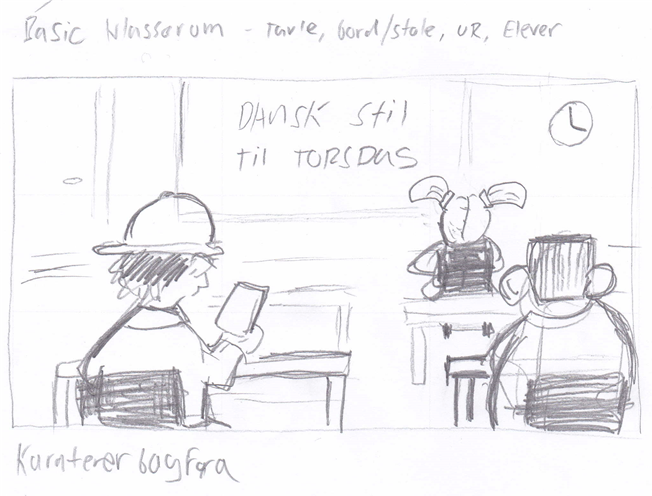 Basic klasserum - Tavle, bord/stole, UR, Elever
DANSK stil
til TORSDAG
Karakterer bagfra